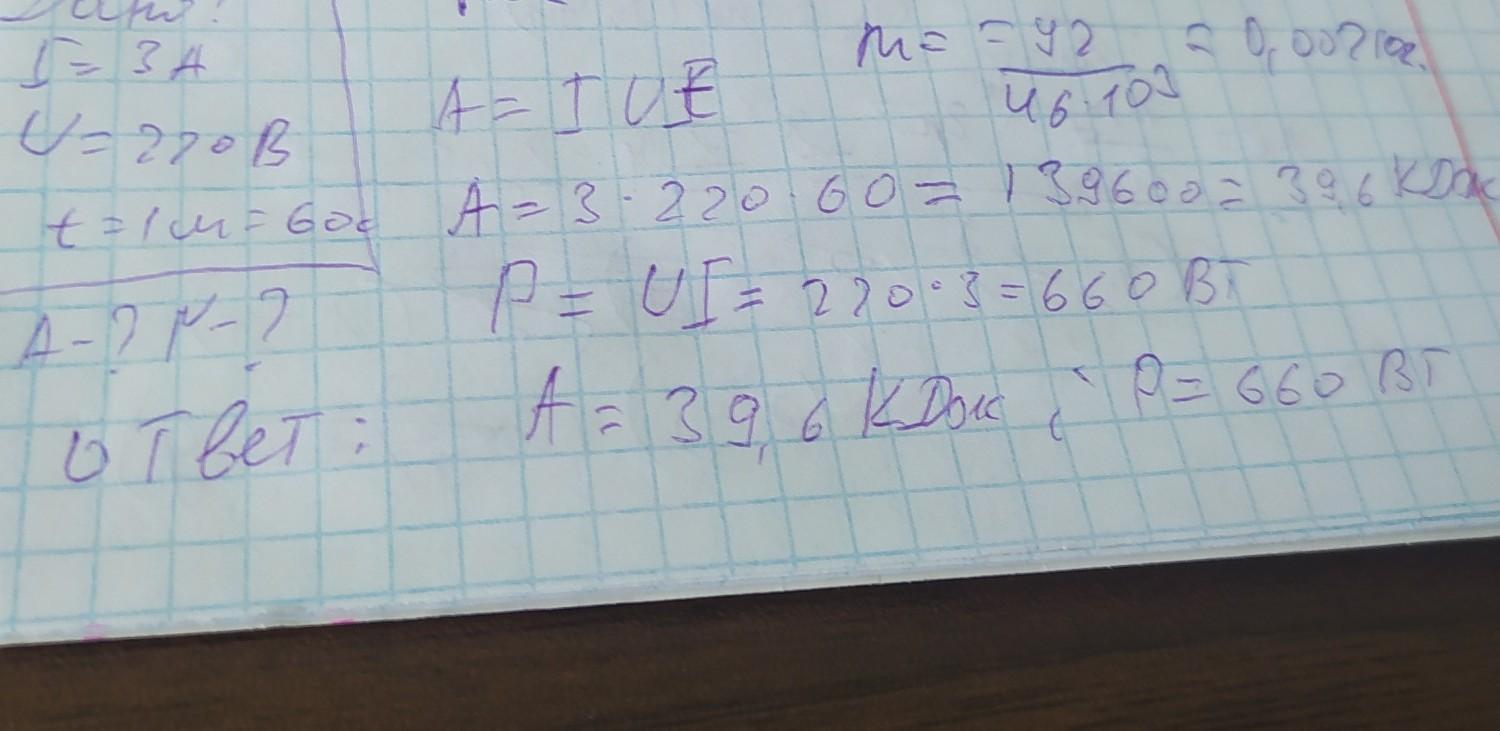 Дано:
I = 3 А
U = 220 В
t = 1 м = 60 с
А - ? P - ?
m = = 92 / 46·10³ = 0,002 кг.
A = I U t
A = 3 · 220 · 60 = 139600 = 39,6 КДж
P = UI = 220 · 3 = 660 Вт
Ответ: A = 39,6 КДж ; P = 660 Вт